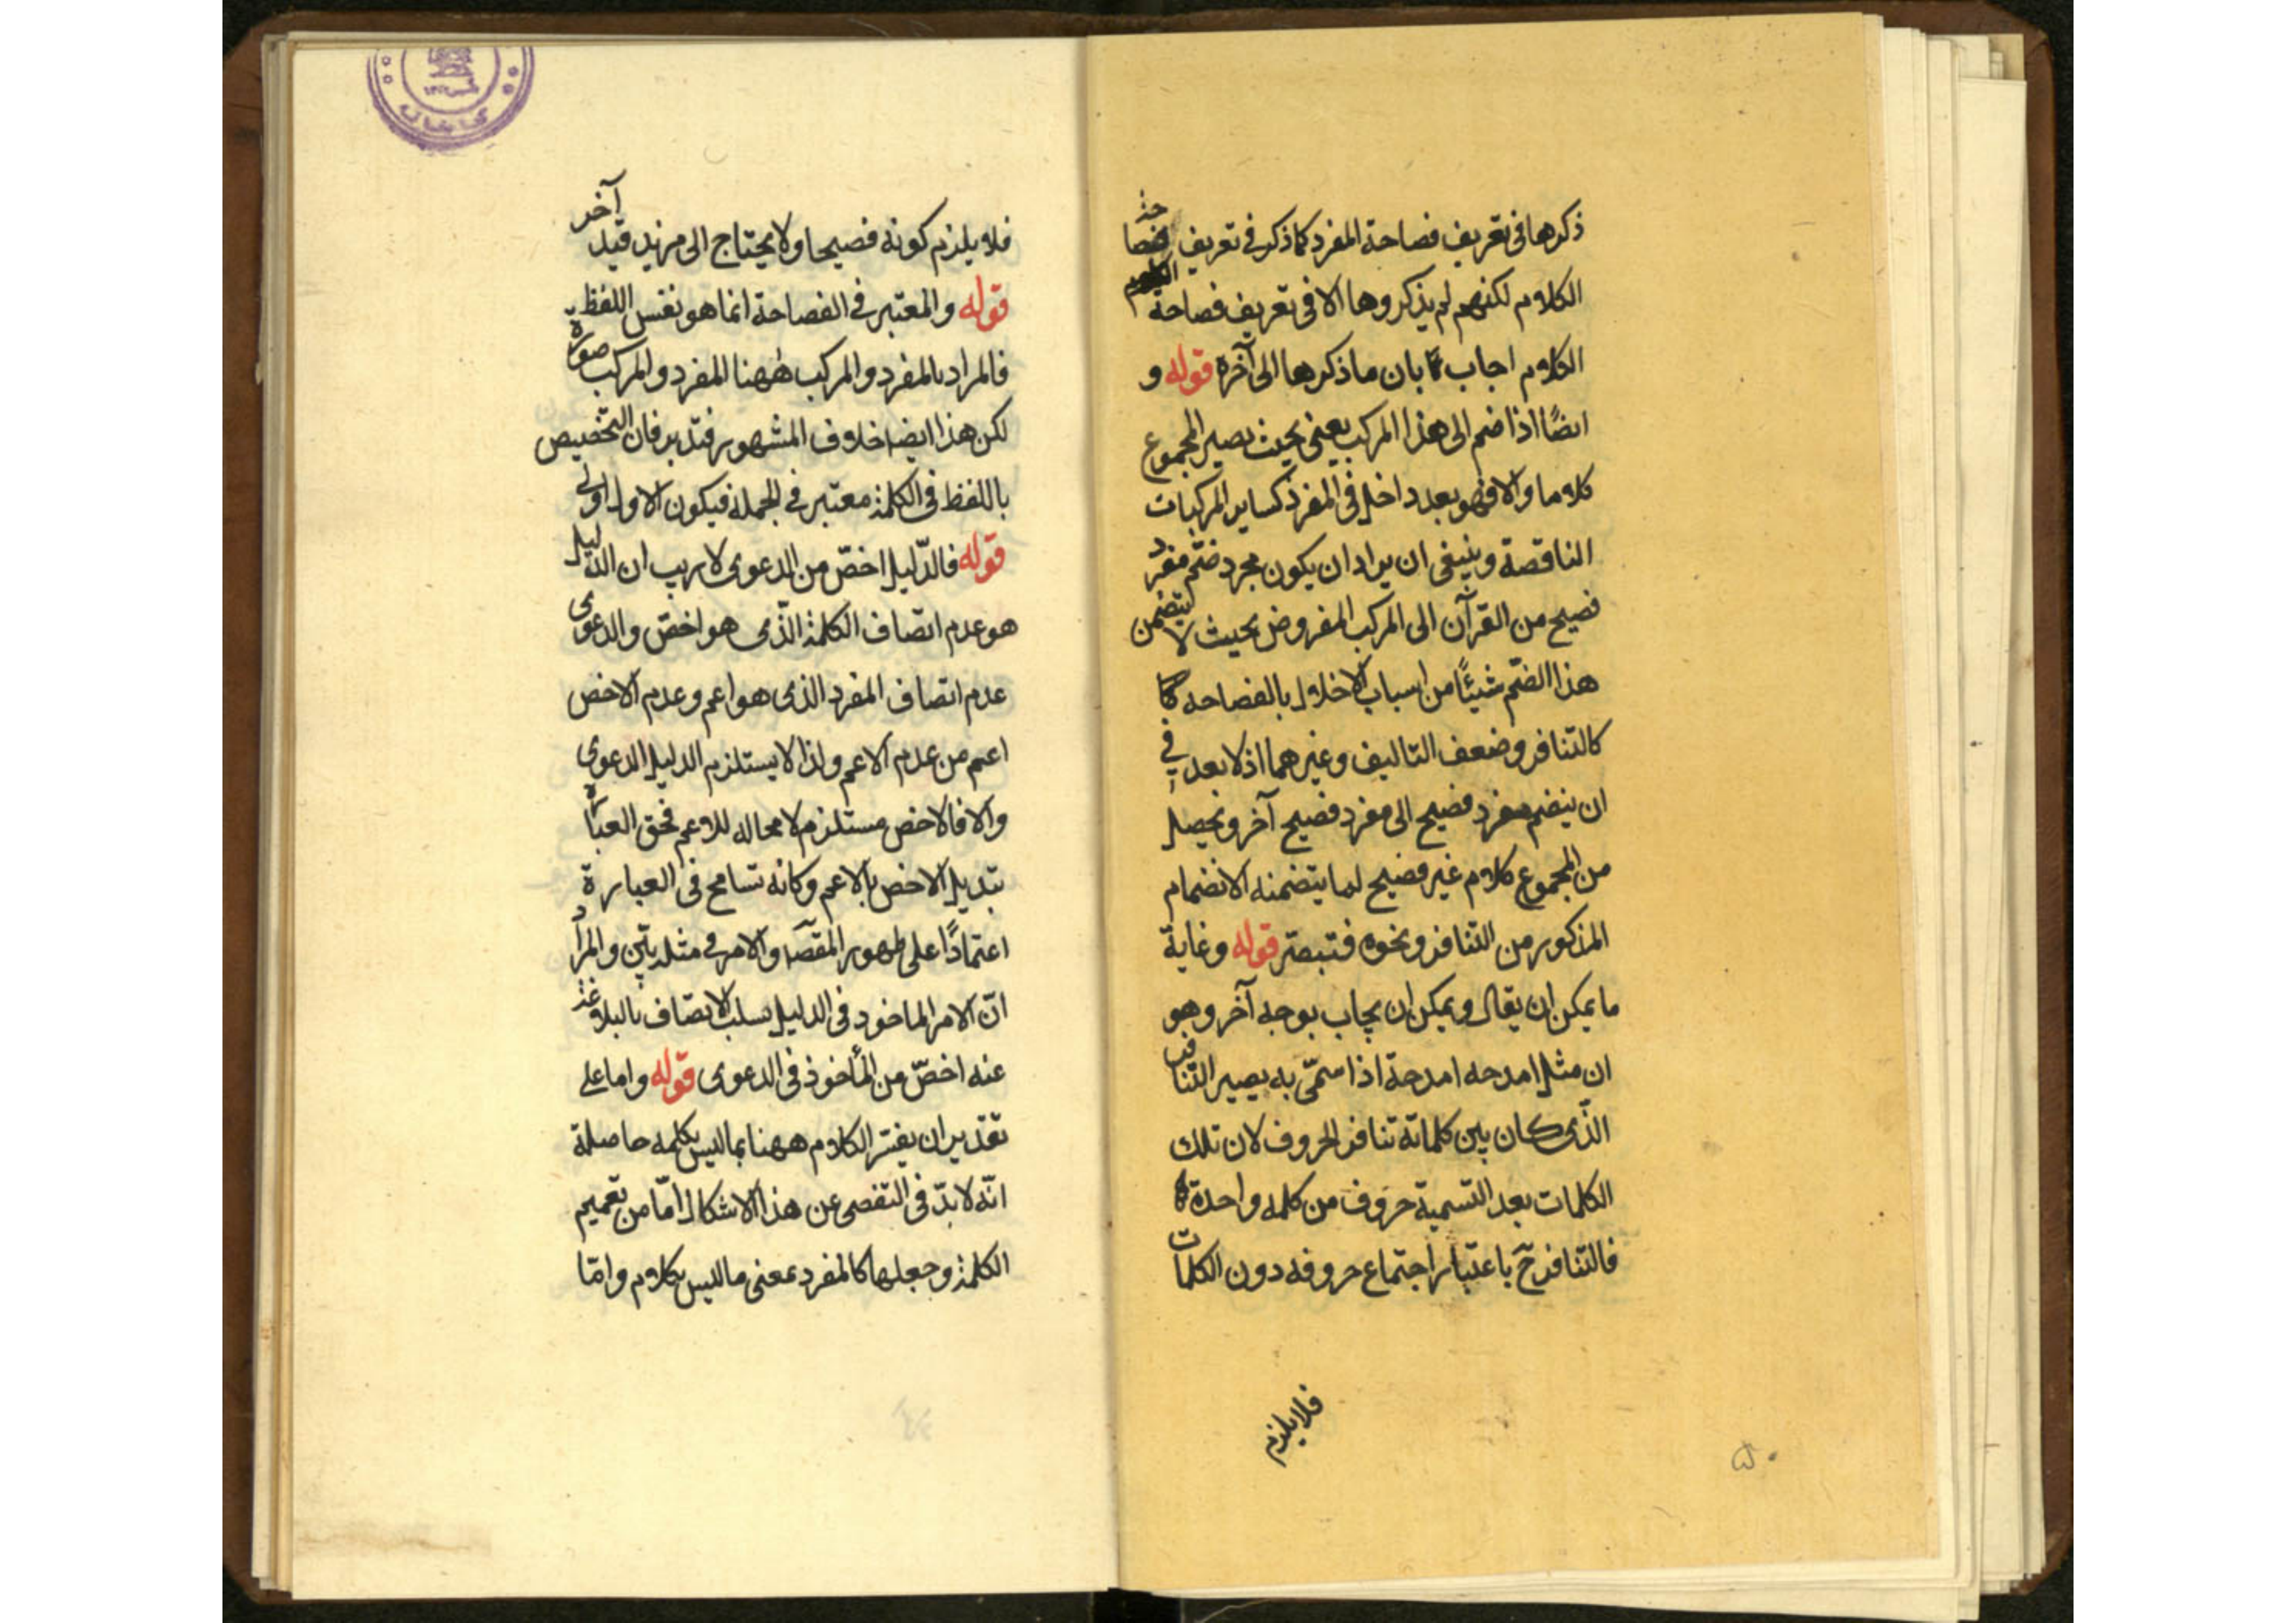 ذكرها فى تعريف فصاحة المفرد كما ذكر فى تعريف فصاحة
الكلام لكنهم لم يذكروها الا فى تعريف فصاحة
الكلام اجاب بان ما ذكرها الى آخره قوله و
ايضًا اذا ضم الى هذا المركب يعنى بحيث يصير المجموع
كلاما والا فهو بعد داخل فى المفرد كساير المركبات
الناقصة وينبغى ان يراد ان يكون مجرد ضمّ مفرد
فصيح من القرآن الى المركب المفروض بحيث لا يتضمن
هذا الضمّ شيئًا من اسباب الاخلال بالفصاحه كما
كالتنافر وضعف التاليف وغيرهما اذ لا بعد فى
ان ينضم مفرد فصيح الى مفرد فصيح آخر ويحصل
من المجموع كلام غير فصيح لما يتضمنه الانضمام
المذكور من التنافر ونحوه فتبصّر قوله وغاية
ما يمكن ان يقال ويمكن ان يجاب بوجه آخر وهو
ان مثل امدحه امدحة اذا سمّى به يصير التنافر
الذّى كان بين كلماته تنافر الحروف لان تلك
الكلمات بعد التسمية حروف من كلمه واحدة
فالتنافر ح باعتبار اجتماع حروفه دون الكلمات
فلا يلزم
٥٠
فلا يلزم كونه فصيحا ولا يحتاج الى مزيد قيد آخر
قوله والمعتبر فى الفصاحة انما هو نفس اللفظ
فالمراد بالمفرد والمركب هٰهنا المفرد والمركب صورة
لكن هذا ايضا خلاف المشهور فتدبر فان التخصيص
باللفظ فى الكلمة معتبر فى الجملة فيكون الاول اولى
قوله فالدّليل اخصّ من الدعوى لا ريب ان الدليل
هو عدم اتصاف الكلمة الذّى هو اخصّ والدعوى
عدم اتصاف المفرد الذى هو اعم وعدم الاخص
اعم من عدم الاعم ولذا لا يستلزم الدليل الدعوى
والا فالاخص مستلزم لا محاله للاعم فحق العبارة
تبديل الاخص بالاعم وكانه تسامح فى العبارة
اعتمادًا على ظهور المقصّ والامر فى مثله بيّن والمراد
انّ الامر الماخود فى الدليل سلب الاتصاف بالبلاغة
عنه اخصّ من المأخوذ فى الدعوى قوله واما على
تقدير ان يفسّر الكلام ههنا بما ليس بكلمه حاصلة
انّه لا بدّ فى التفصى عن هذا الاشكال امّا من تعميم
الكلمة وجعلها كالمفرد بمعنى ما ليس بكلام وامّا